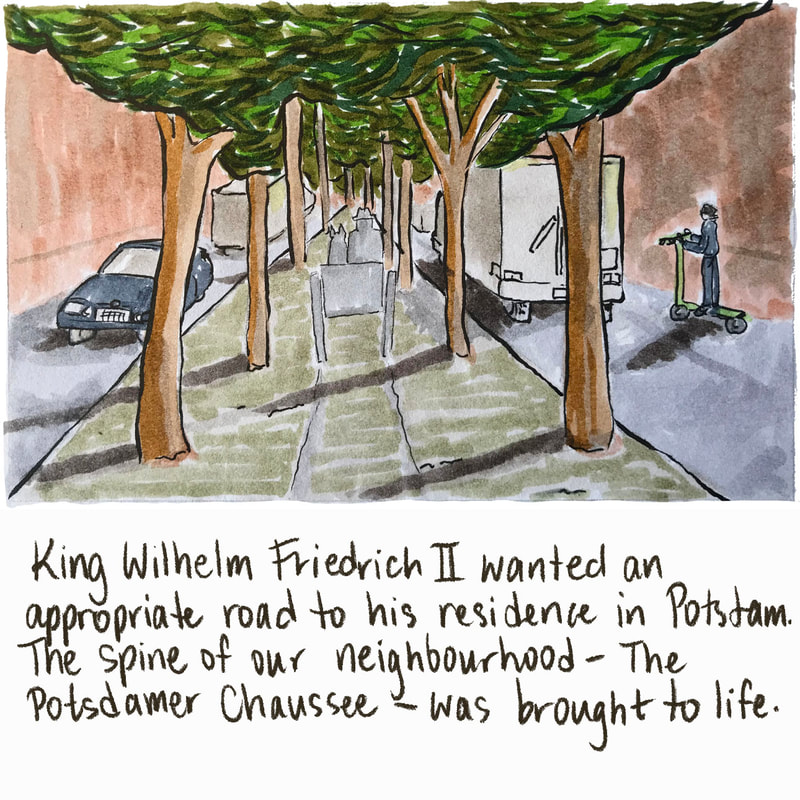 King Wilhelm Friedrich II wanted an
appropriate road to his residence in Potsdam.
The spine of our neighbourhood – The
Potsdamer Chaussee – was brought to life.